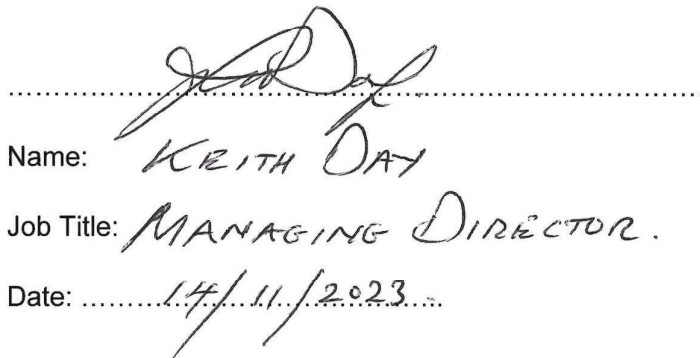 Name: KEITH DAY
Job Title: MANAGING DIRECTOR.
Date: 14/11/2023